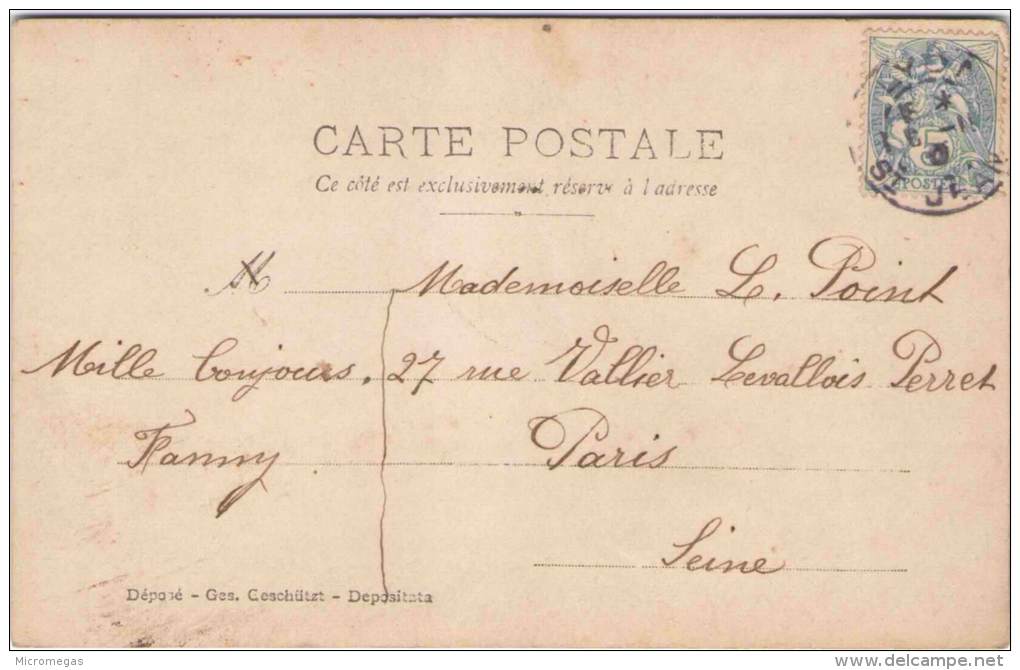 CARTE POSTALE
Ce côté est exclusivement réservé à l'adresse
M
Mademoiselle L. Point
27 rue Vallier Levallois Perret
Paris
Seine
Mille bonjours,
Fanny
Déposé - Ges. Geschützt - Depositata
5
POSTES
Micromegas
www.delcampe.net